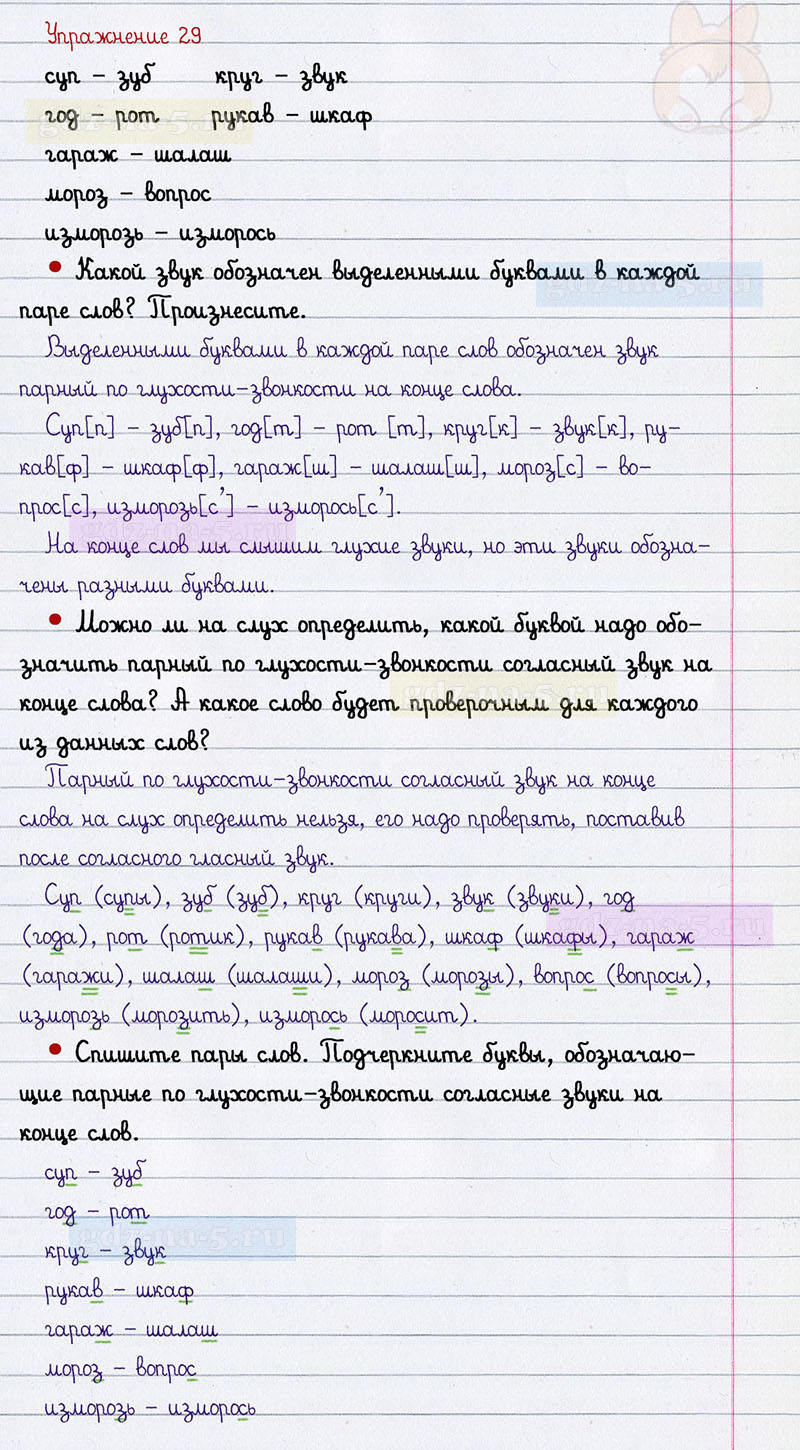 Упражнение 29
суп – зуб круг – звук
год – рот рукав – шкаф
гараж – шалаш
мороз – вопрос
изморозь – изморось
• Какой звук обозначен выделенными буквами в каждой
паре слов? Произнесите.
Выделенными буквами в каждой паре слов обозначен звук
парный по глухости-звонкости на конце слова.
Суп[п] – зуб[п], год[т] – рот [т], круг[к] – звук[к], ру-
кав[ф] – шкаф[ф], гараж[ш] – шалаш[ш], мороз[с] – во-
прос[с], изморозь[с'] – изморось[с'].
На конце слов мы слышим глухие звуки, но эти звуки обозна-
чены разными буквами.
• Можно ли на слух определить, какой буквой надо обо-
значить парный по глухости-звонкости согласный звук на
конце слова? А какое слово будет проверочным для каждого
из данных слов?
Парный по глухости-звонкости согласный звук на конце
слова на слух определить нельзя, его надо проверять, поставив
после согласного гласный звук.
Суп (супы), зуб (зуб), круг (круги), звук (звуки), год
(года), рот (ротик), рукав (рукава), шкаф (шкафы), гараж
(гаражи), шалаш (шалаши), мороз (морозы), вопрос (вопросы),
изморозь (морозить), изморось (моросит).
• Спишите пары слов. Подчеркните буквы, обозначаю-
щие парные по глухости-звонкости согласные звуки на
конце слов.
суп – зуб
год – рот
круг – звук
рукав – шкаф
гараж – шалаш
мороз – вопрос
изморозь – изморось
gdz-na-5.ru
gdz-na-5.ru
gdz-na-5.ru
gdz-na-5.ru
gdz-na-5.ru
gdz-na-5.ru